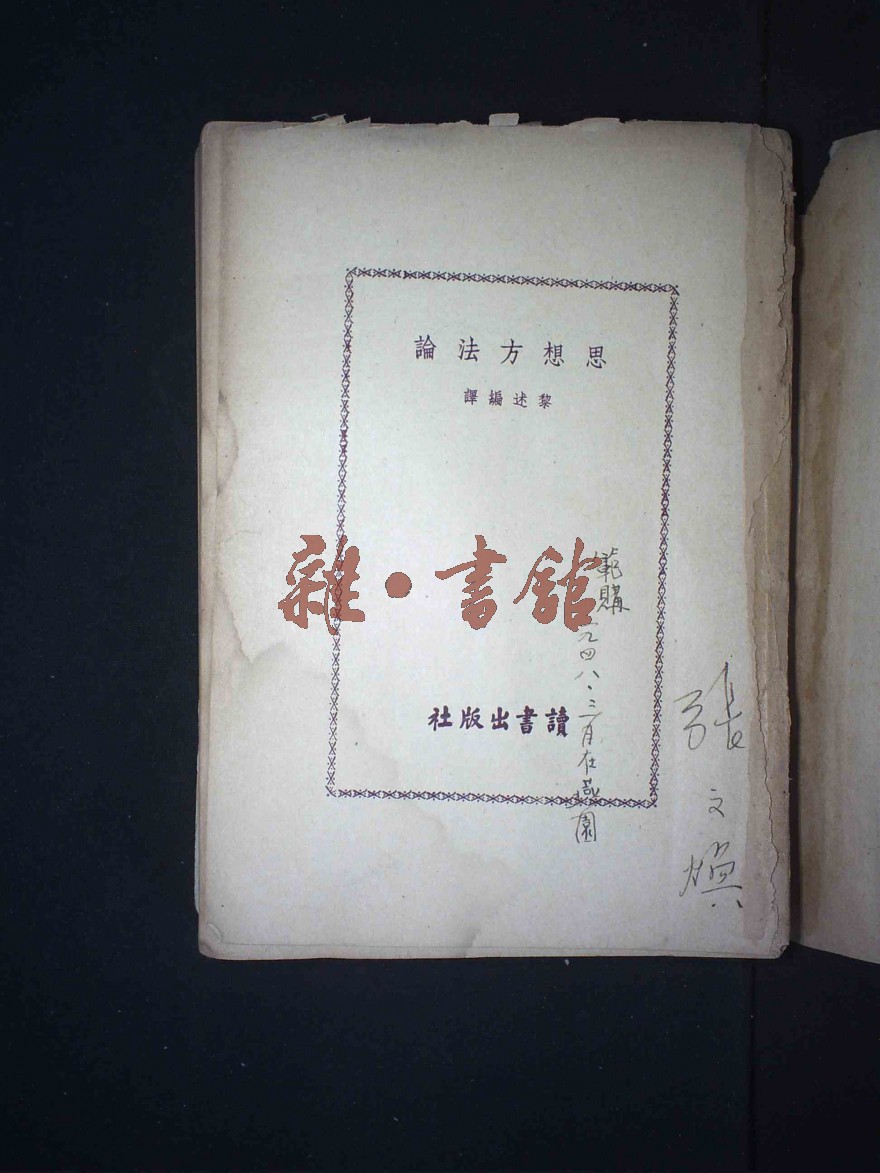 思想方法論
黎述編譯
雜·書館
範購
一九四八·三月在燕園
讀書出版社
張文